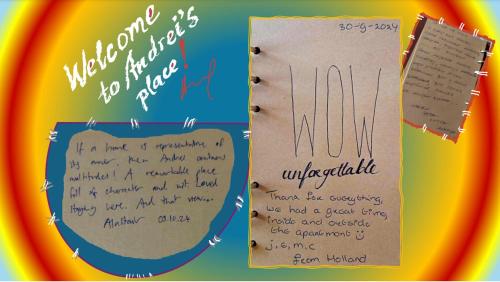 Welcome
to Andreï's
place!
If a home is representative of
its owner, then Andreï contains
multitudes! A remarkable place
full of character and wit. Loved
staying here. And that view...
Alastair 09.10.24
30-9-2024
WOW
unforgettable
Thank for everything,
we had a great time,
inside and outside
the apartment
j, s, m, c
from Holland